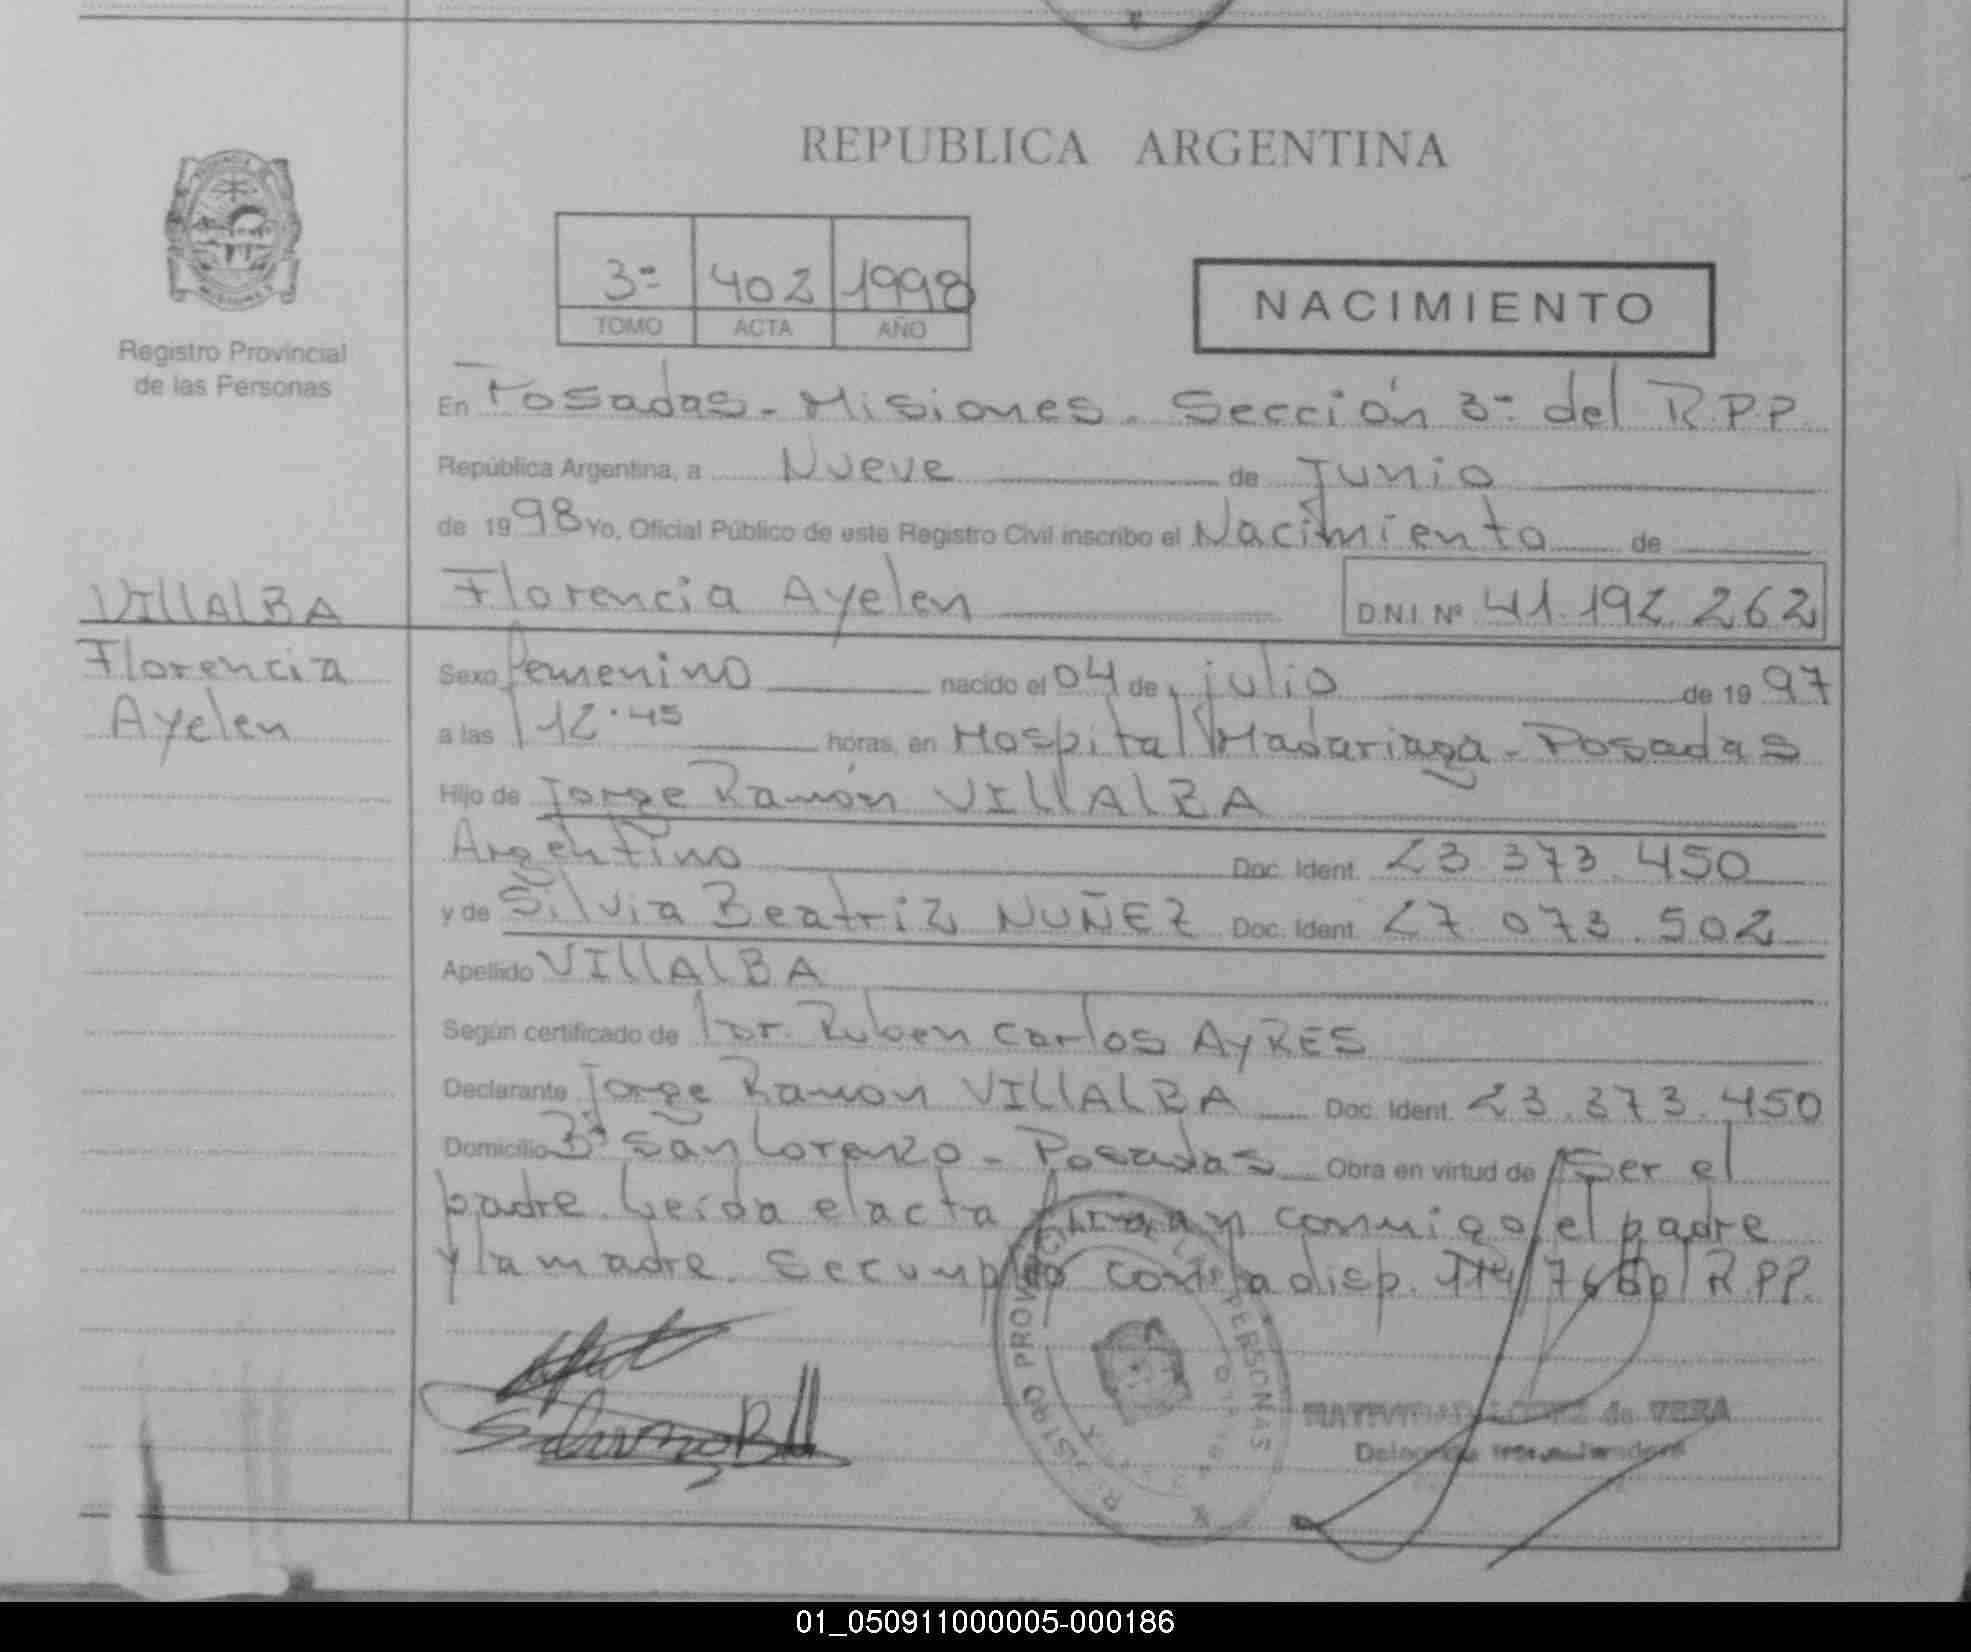 REPUBLICA ARGENTINA
Registro Provincial
de las Personas
3º 402 1998
TOMO ACTA AÑO
NACIMIENTO
En Posadas - Misiones - Sección 3º del R.P.P.
República Argentina, a Nueve de Junio
de 1998 Yo, Oficial Público de este Registro Civil inscribo el Nacimiento de
Florencia Ayelen D.N.I. Nº 41.192.262
VIllAlBA
Florencia
Ayelen
Sexo femenino nacido el 04 de julio de 1997
a las 12.45 horas, en Hospital Madariaga - Posadas
Hijo de Jorge Ramón VIllAlBA
Argentino Doc. Ident. 23.373.450
y de Silvia Beatriz NUÑEZ Doc. Ident. 27.073.502
Apellido VIllAlBA
Según certificado de Dr. Ruben Carlos AyRES
Declarante Jorge Ramón VIllAlBA Doc. Ident. 23.373.450
Domicilio Bº San Lorenzo - Posadas Obra en virtud de Ser el
padre. Leída el acta firman conmigo el padre
y la madre. Se cumplió con la disp. R.P.P.
REGISTRO PROVINCIAL DE LAS PERSONAS
NATIVIDAD LOPEZ de VERA
01_050911000005-000186